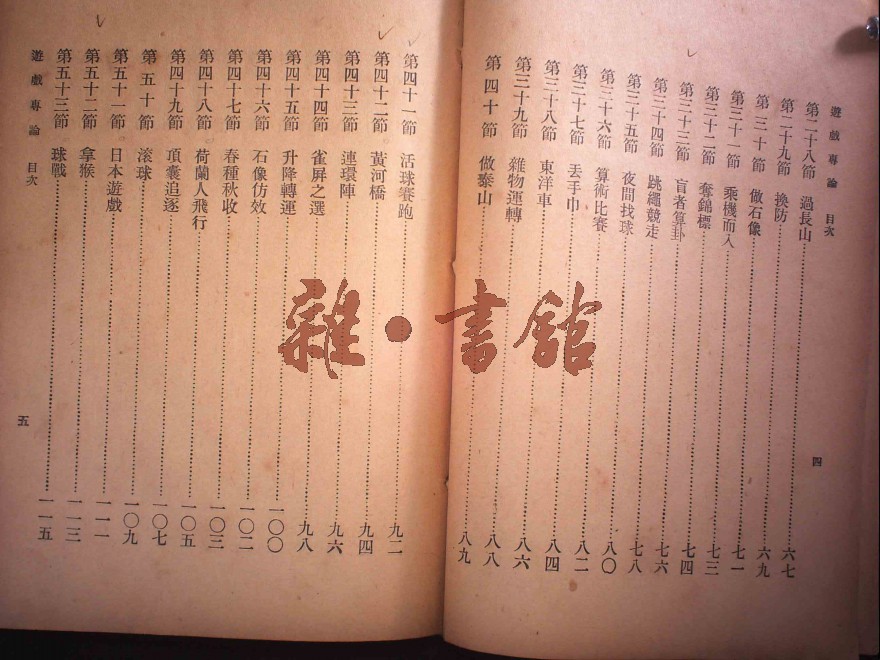 遊戲專論 目次
四
第二十八節 過長山 六七
第二十九節 換防 六九
第三十節 做石像 七一
第三十一節 乘機而入 七三
第三十二節 奪錦標 七四
第三十三節 盲者算卦 七六
第三十四節 跳繩競走 七八
第三十五節 夜間找球 八〇
第三十六節 算術比賽 八二
第三十七節 丟手巾 八四
第三十八節 東洋車 八六
第三十九節 雜物運轉 八八
第四十節 做泰山 八九
第四十一節 活球賽跑 九二
第四十二節 黃河橋 九四
第四十三節 連環陣 九六
第四十四節 雀屏之選 九八
第四十五節 升降轉運 一〇〇
第四十六節 石像仿效 一〇二
第四十七節 春種秋收 一〇三
第四十八節 荷蘭人飛行 一〇五
第四十九節 頂囊追逐 一〇七
第五十節 滾球 一〇九
第五十一節 日本遊戲 一一一
第五十二節 拿猴 一一三
第五十三節 球戰 一一五
遊戲專論 目次
五
雜·書館